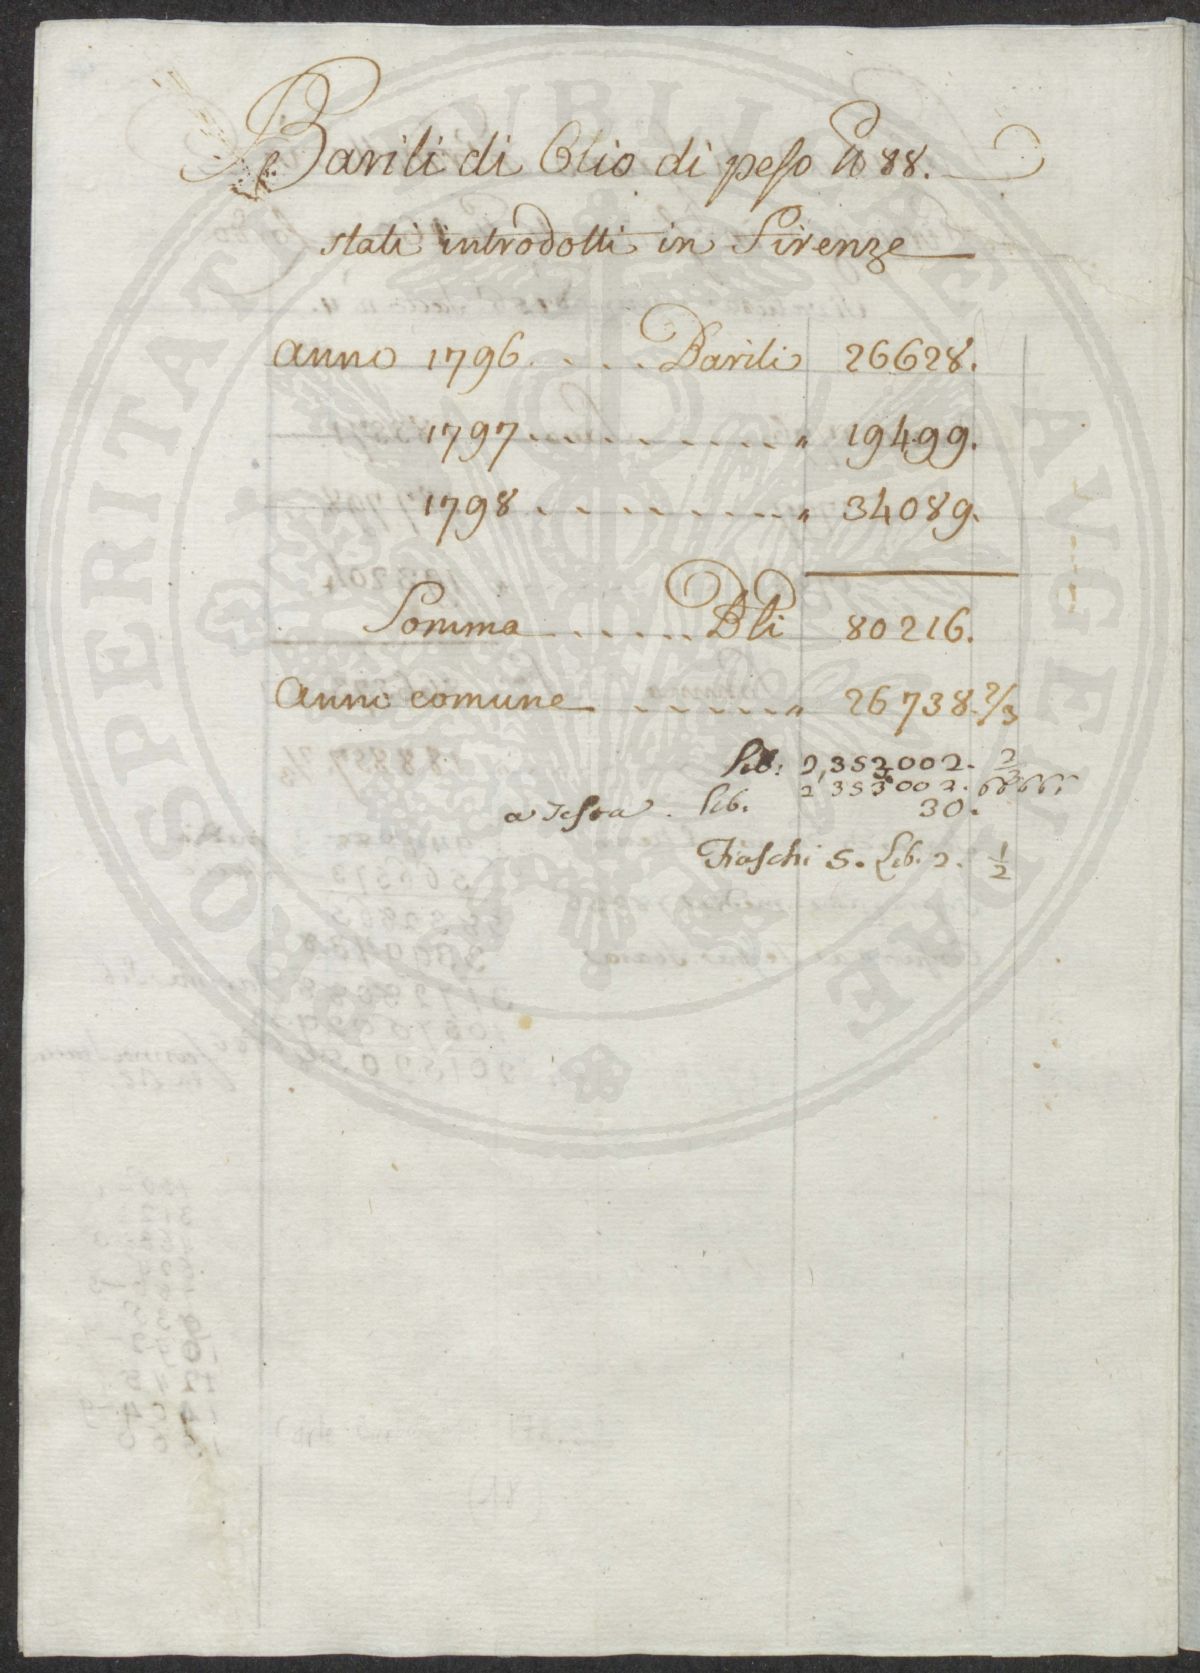 Barili di Olio di peso lb 88.
stati introdotti in Firenze
Anno 1796 . . . . Barili 26628.
1797 . . . . . . . . . " 19499.
1798 . . . . . . . . . " 34089.
Somma . . . . . Bli 80216.
Anno comune . . . . . . " 26738. 2/3
Lib: 2,353002. 2/3
2,353002.
a Testa. Lib. 30.
Fiaschi 5. Lib. 2. 1/2
PROSPERITATI PUBLICAE AUGENDAE